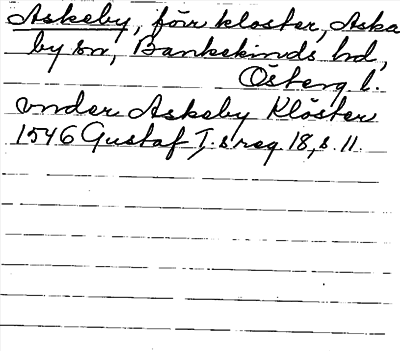 Askeby, förr kloster, Aska
by sn, Bankekinds hd,
Österg l.
under Askeby Klöster
1546 Gustaf I:s reg 18, s. 11.